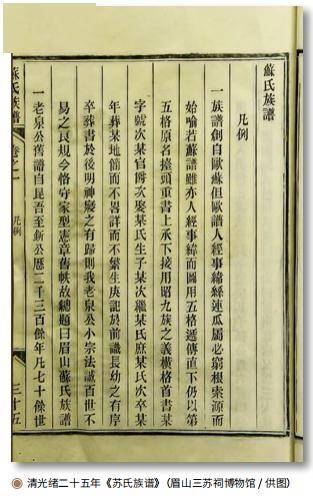 蘇氏族譜
凡例
一族譜創自歐蘇但歐譜人經事緯絲連瓜屬必窮根索源而
始喻若蘇譜雖亦人經事緯而圖用五格遞傳直下仍以第
五格原名擡頭重書上承下接用昭九族之義橫格首書某
字號次某官爵次娶某氏生子某次繼某氏庶某氏次卒某
年葬某地節而不畧詳而不繁生庚記於前識長幼之有序
卒葬書於後明神凝之有歸則我老泉公小宗法誠百世不
易之良規今恪守家型憲章舊帙故總題曰眉山蘇氏族譜
一老泉公舊譜自昆吾至新公歷二千三百餘年凡七十餘世
蘇氏族譜
卷之一
凡例
三十五
清光绪二十五年《苏氏族谱》（眉山三苏祠博物馆 / 供图）